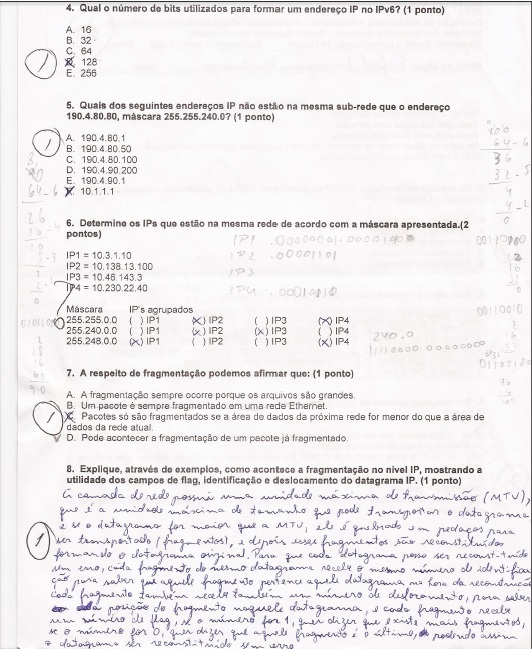 4. Qual o número de bits utilizados para formar um endereço IP no IPv6? (1 ponto)
A. 16
B. 32
C. 64
D. 128
E. 256
1
5. Quais dos seguintes endereços IP não estão na mesma sub-rede que o endereço
190.4.80.80, máscara 255.255.240.0? (1 ponto)
1
A. 190.4.80.1
B. 190.4.80.50
C. 190.4.80.100
D. 190.4.90.200
E. 190.4.90.1
10.1.1.1
6. Determine os IPs que estão na mesma rede de acordo com a máscara apresentada.(2
pontos)
IP1 = 10.3.1.10
IP2 = 10.138.13.100
IP3 = 10.46.143.3
IP4 = 10.230.22.40
IP1 .00000001.
IP2 .00001101
IP3
IP4
Máscara IP's agrupados
255.255.0.0 ( ) IP1 (X) IP2 ( ) IP3 (X) IP4
255.240.0.0 ( ) IP1 (X) IP2 (X) IP3 ( ) IP4
255.248.0.0 (X) IP1 ( ) IP2 ( ) IP3 (X) IP4
240.0
7. A respeito de fragmentação podemos afirmar que: (1 ponto)
A. A fragmentação sempre ocorre porque os arquivos são grandes.
B. Um pacote é sempre fragmentado em uma rede Ethernet.
1
C. Pacotes só são fragmentados se a área de dados da próxima rede for menor do que a área de
dados da rede atual.
D. Pode acontecer a fragmentação de um pacote já fragmentado.
8. Explique, através de exemplos, como acontece a fragmentação no nível IP, mostrando a
utilidade dos campos de flag, identificação e deslocamento do datagrama IP. (1 ponto)
A camada de rede possui uma unidade máxima de transmissão (MTU),
que é a unidade máxima de tamanho que pode transportar o datagrama
e se o datagrama for maior que a MTU, ele é quebrado em pedaços para
1
ser transportado (fragmentos), e depois esses fragmentos são reconstituídos
formando o datagrama original. Para que cada datagrama possa ser reconstituído
sem erro, cada fragmento do mesmo datagrama recebe o mesmo número de identifica
ção para saber que aquele fragmento pertence aquele datagrama na hora da reconstrução
Cada fragmento também recebe também um número de desforamento, para saber
a posição do fragmento naquele datagrama, e cada fragmento recebe
um número de flag, se o número for 1, quer dizer que existe mais fragmentos,
se o número for 0, quer dizer que aquele fragmento é o último, podendo assim
o datagrama ser reconstituído sem erro